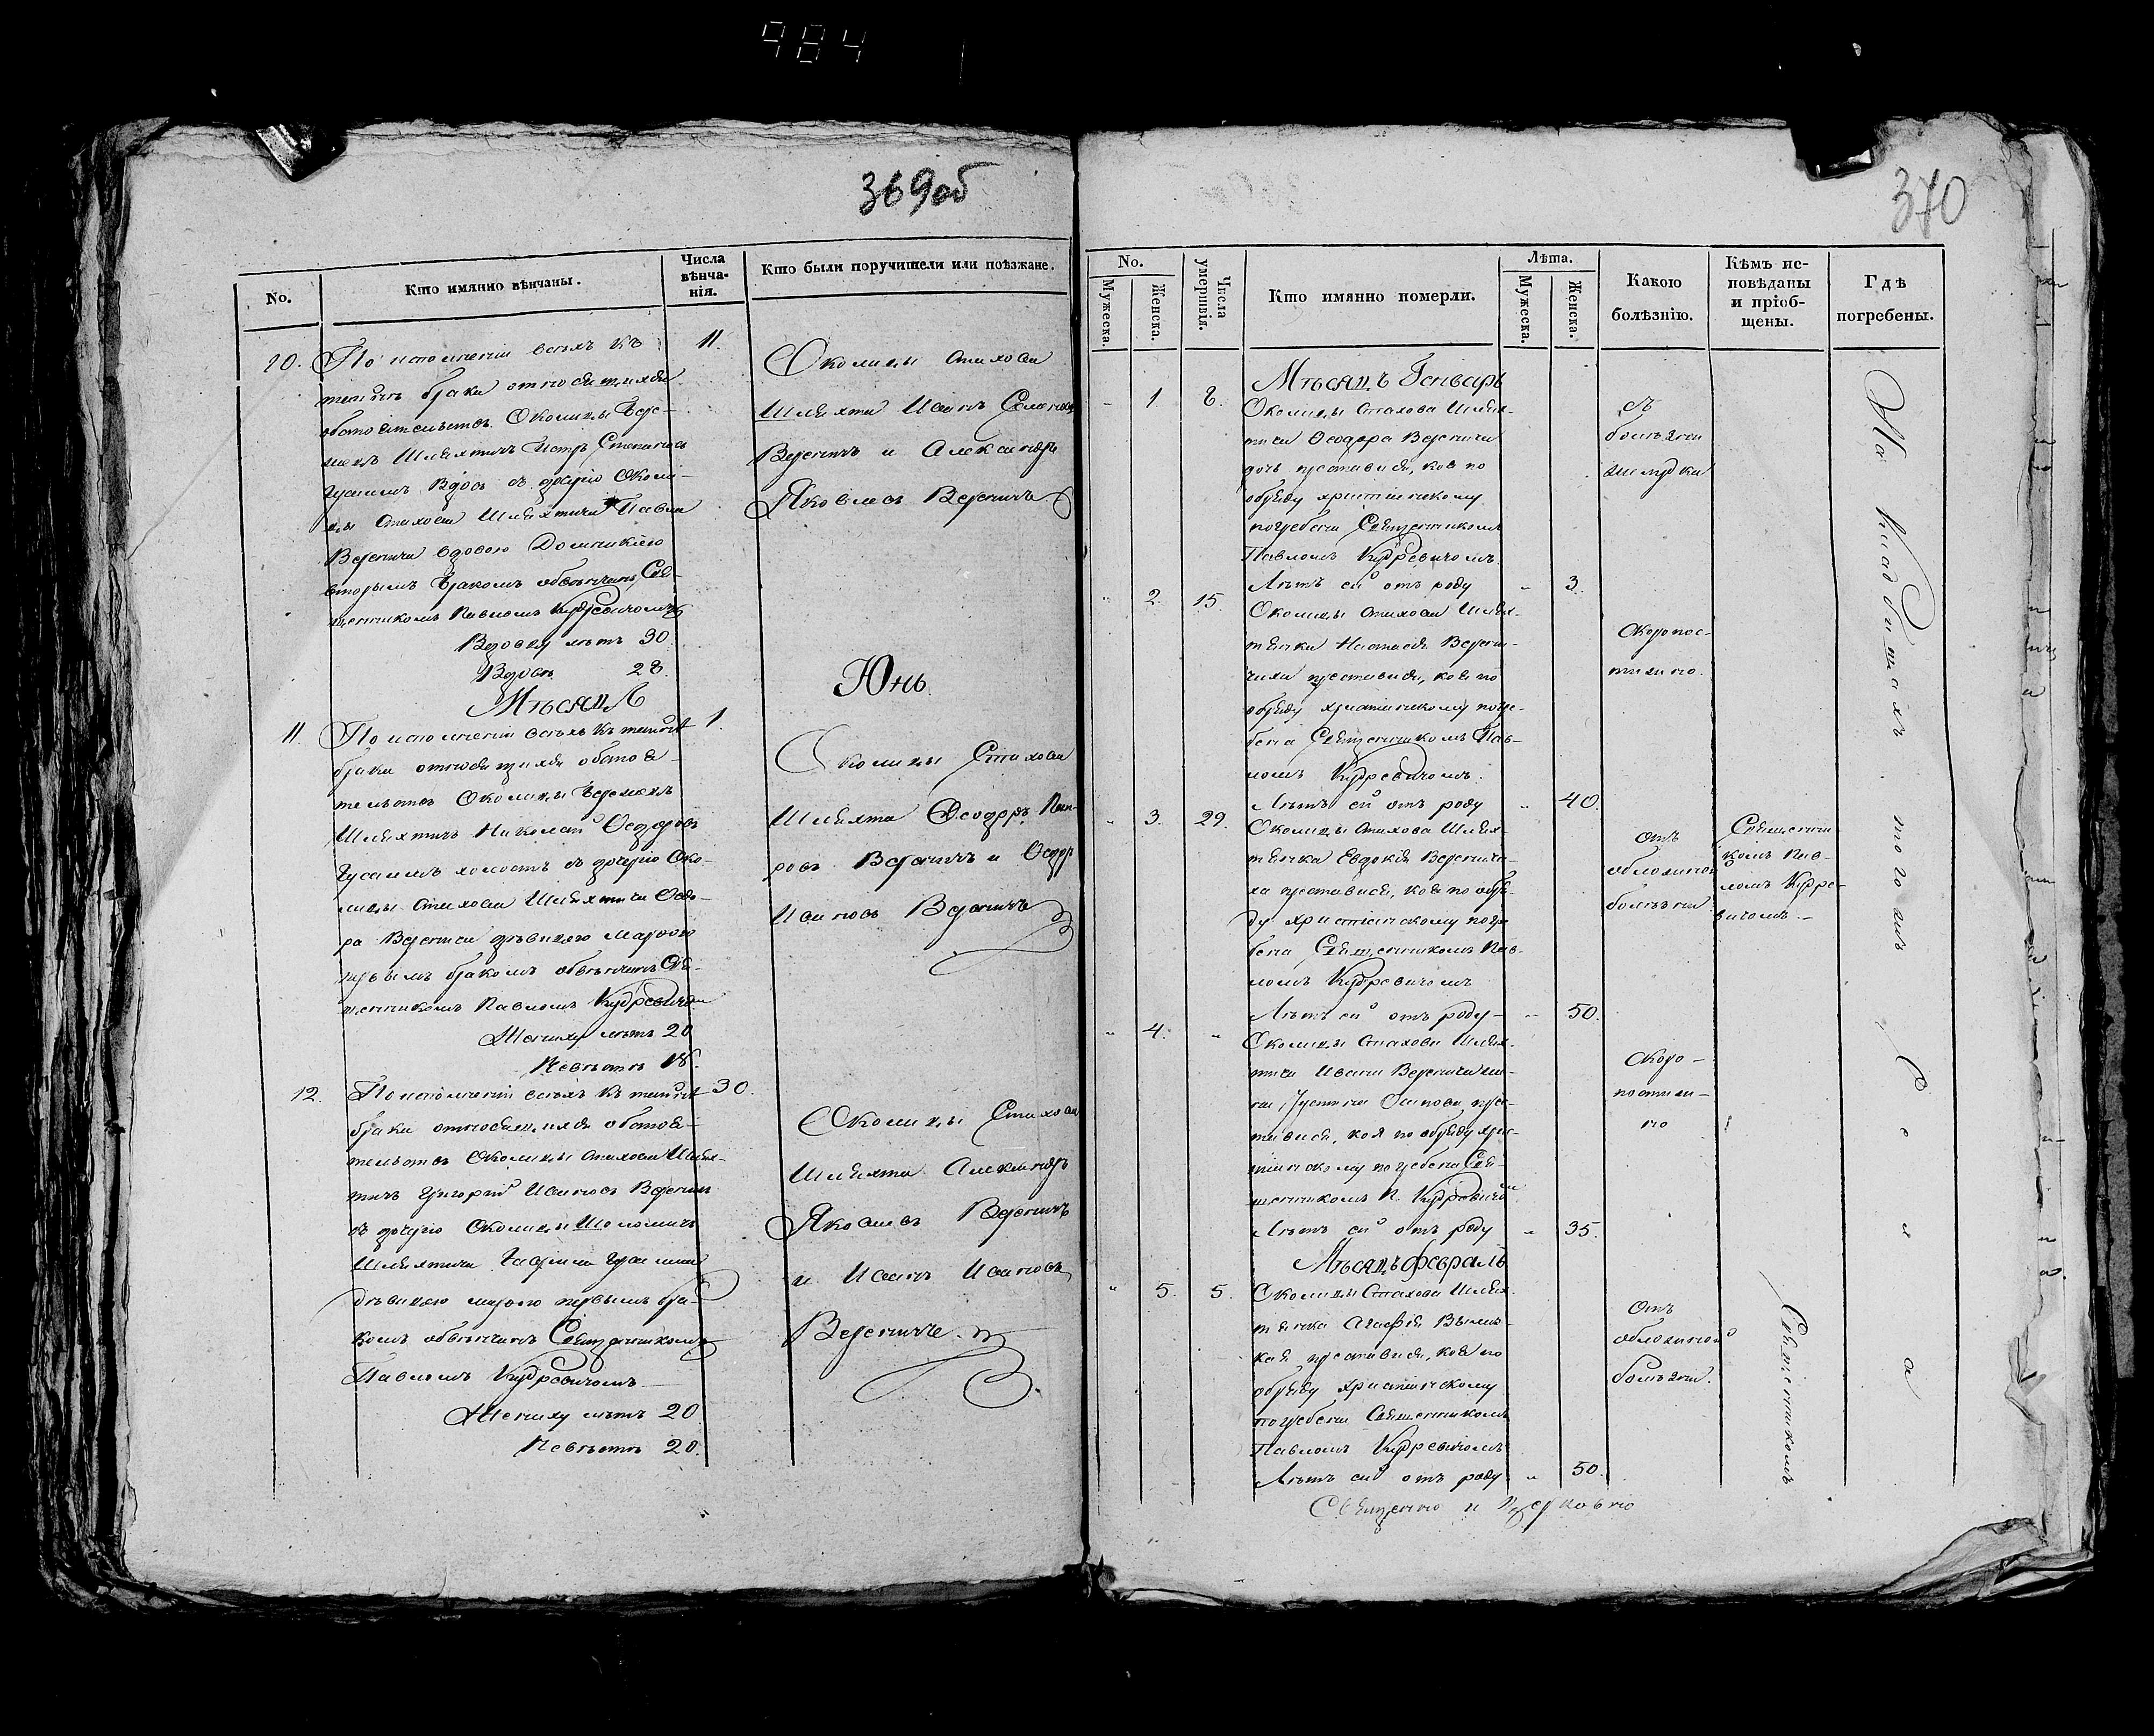 984
369об
No.
Кто имянно вѣнчаны.
Числа
вѣнча-
нія.
Кто были поручители или поѣзжане.
10.
По исполненіи всѣхъ къ
11.
брака относящихся
обстоятельствъ Околицы Бере-
Шляхтичъ Петръ Степановъ
Вдовъ съ дочерію Околи-
цы Стахова Шляхтича Павла
Веренича вдовою Доминикіею
вторымъ бракомъ обвѣнчанъ Свя-
щенникомъ Павломъ Кудревичомъ
Вдовцу лѣтъ 30.
Вдовѣ 28.
Околицы Стахова
Шляхта Иванъ
Вереничъ и Александръ
Яковлевъ Вереничъ
Мѣсяцъ
Юнь.
11.
По исполненіи всѣхъ къ
1.
брака относящихся обстоя-
тельствъ Околицы
Шляхтичъ Николай Ѳеодоровъ
холостъ съ дочерію Око-
лицы Стахова Шляхтича Ѳеодо-
ра Веренича дѣвицею Марѳою
первымъ бракомъ обвѣнчанъ Свя-
щенникомъ Павломъ Кудревичомъ
Жениху лѣтъ 20
Невѣстѣ 18.
Околицы Стахова
Шляхта Ѳеодоръ
ровъ Вереничъ и Ѳеодоръ
Ивановъ Вереничъ
12.
По исполненіи всѣхъ къ
30.
брака относящихся обстоя-
тельствъ Околицы Стахова Шлях-
тичъ Григорій Ивановъ Вереничъ
съ дочерію Околицы Шоломичъ
Шляхтича
дѣвицею первымъ бра-
комъ обвѣнчанъ Священникомъ
Павломъ Кудревичомъ
Жениху лѣтъ 20.
Невѣстѣ 20.
Околицы Стахова
Шляхта Александръ
Яковлевъ Вереничъ
и Иванъ Ивановъ
Вереничъ.
370
No.
Мужеска.
Женска.
Числа
умершвія.
Кто имянно померли.
Лѣта.
Мужеска.
Женска.
Какою
болѣзнію.
Кѣмъ ис-
повѣданы
и пріоб-
щены.
Гдѣ
погребены.
Мѣсяцъ Генварь
1. 8.
Околицы Стахова Шлях-
тича Ѳеодора Веренича
дочь преставися, коя по
обряду христіанскому
погребена Священникомъ
Павломъ Кудревичомъ
Лѣтъ ей отъ роду 3.
съ
болѣзни
желудка
2. 15.
Околицы Стахова Шлях-
тянка Настасія Верени-
чиха преставися, коя по
обряду христіанскому погре-
бена Священникомъ Пав-
ломъ Кудревичомъ.
Лѣтъ ей отъ роду 40.
Скоропос-
тижно.
3. 29.
Околицы Стахова Шлях-
тянка Евдокія Вереничи-
ха преставися, коя по обря-
ду христіанскому погре
бена Священникомъ Пав-
ломъ Кудревичомъ
Лѣтъ ей отъ роду 50.
Отъ
обложной
болѣзни
Священни
комъ Пав-
ломъ Кудре-
вичомъ.
4. "
Околицы Стахова Шлях-
тича Ивана Веренича же-
на Иустина Осипова прес-
тавися, коя по обряду хрис-
тіанскому погребена Свя-
щенникомъ П. Кудревичомъ
Лѣтъ ей отъ роду 35.
Скоро-
постиж-
но
Мѣсяцъ Февраль
5. 5.
Околицы Стахова Шлях-
тянка Агафія
кая преставися, коя по
обряду христіанскому
погребена Священникомъ
Павломъ Кудревичомъ
Лѣтъ ей отъ роду 50.
Отъ
обложной
болѣзни.
Священникомъ
На кладбищахъ тогожъ Села
Священно и Церковно